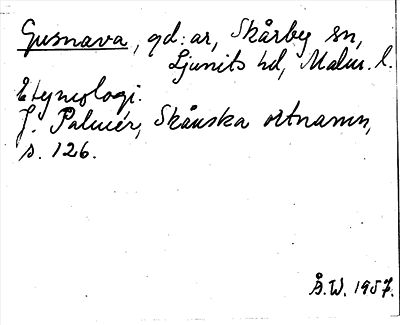 Gusnava, gd:ar, Skårby sn,
Ljunits hd, Malm. l.
Etymologi.
J. Palmér, Skånska ortnamn,
s. 126.
Å.W. 1957.